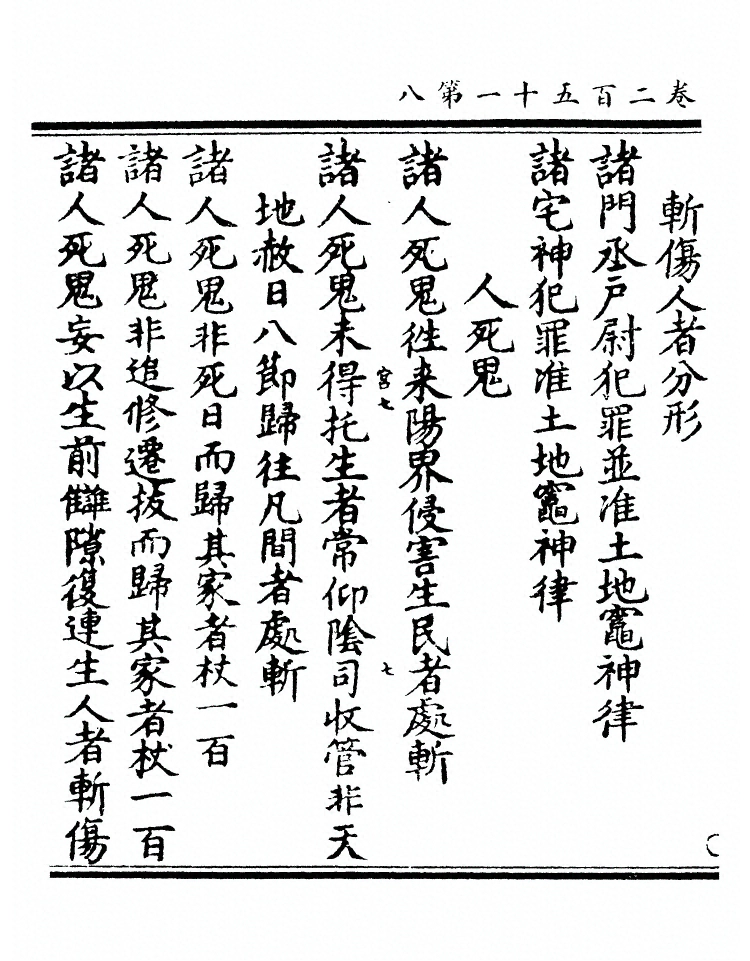 卷二百五十一第八
斬傷人者分形
諸門丞戸尉犯罪並准土地竈神律
諸宅神犯罪准土地竈神律
人死鬼
諸人死鬼徃来陽界侵害生民者處斬
宮七
七
諸人死鬼未得托生者常仰陰司收管非天
地赦日八節歸往凡間者處斬
諸人死鬼非死日而歸其家者杖一百
諸人死鬼非追修遷拔而歸其家者杖一百
諸人死鬼妄以生前讎隙復連生人者斬傷